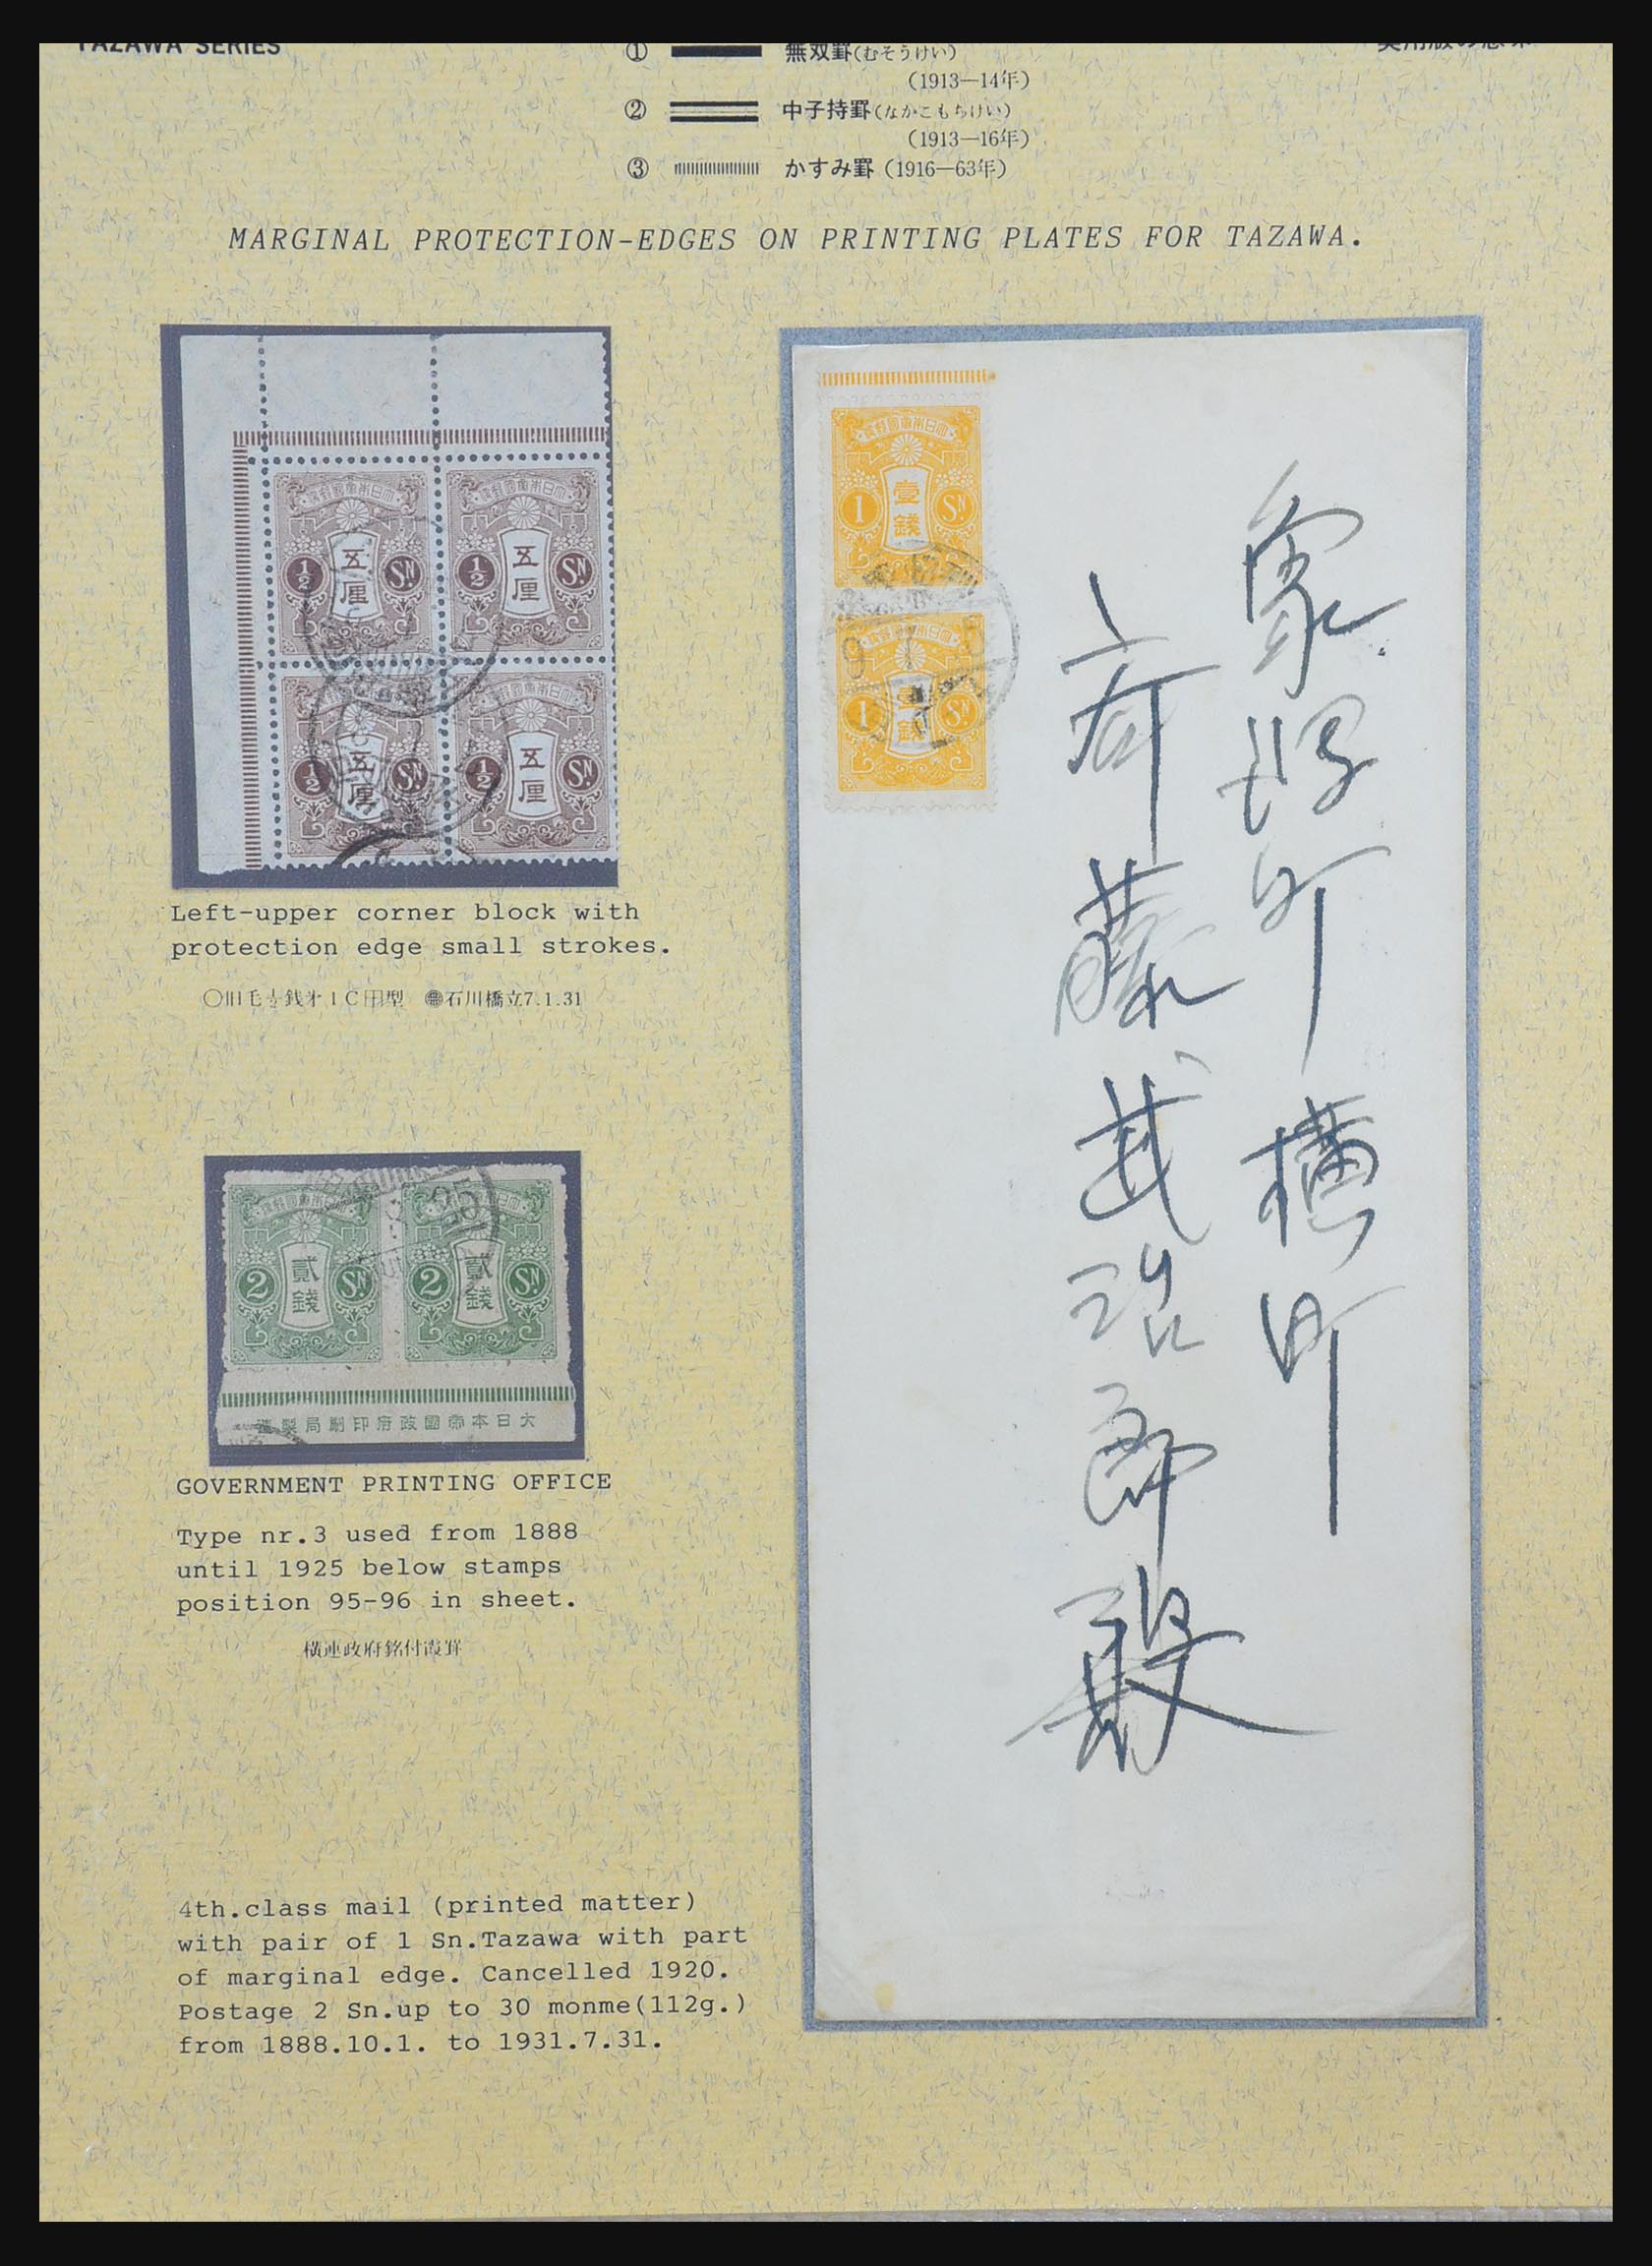 TAZAWA SERIES
① 無双罫(むそうけい)
(1913—14年)
② 中子持罫(なかこもちけい)
(1913—16年)
③ かすみ罫 (1916—63年)
MARGINAL PROTECTION-EDGES ON PRINTING PLATES FOR TAZAWA.
五厘
1/2 SN
五厘
1/2 SN
五厘
1/2 SN
五厘
1/2 SN
Left-upper corner block with
protection edge small strokes.
石川橋立7.1.31
貳錢
2 SN
貳錢
2 SN
造製局刷印府政國帝本日大
GOVERNMENT PRINTING OFFICE
Type nr.3 used from 1888
until 1925 below stamps
position 95-96 in sheet.
横連政府銘付霞罫
4th.class mail (printed matter)
with pair of 1 Sn.Tazawa with part
of marginal edge. Cancelled 1920.
Postage 2 Sn.up to 30 monme(112g.)
from 1888.10.1. to 1931.7.31.
壹錢
1 SN
壹錢
1 SN
象潟町横町
斎藤武治郎殿